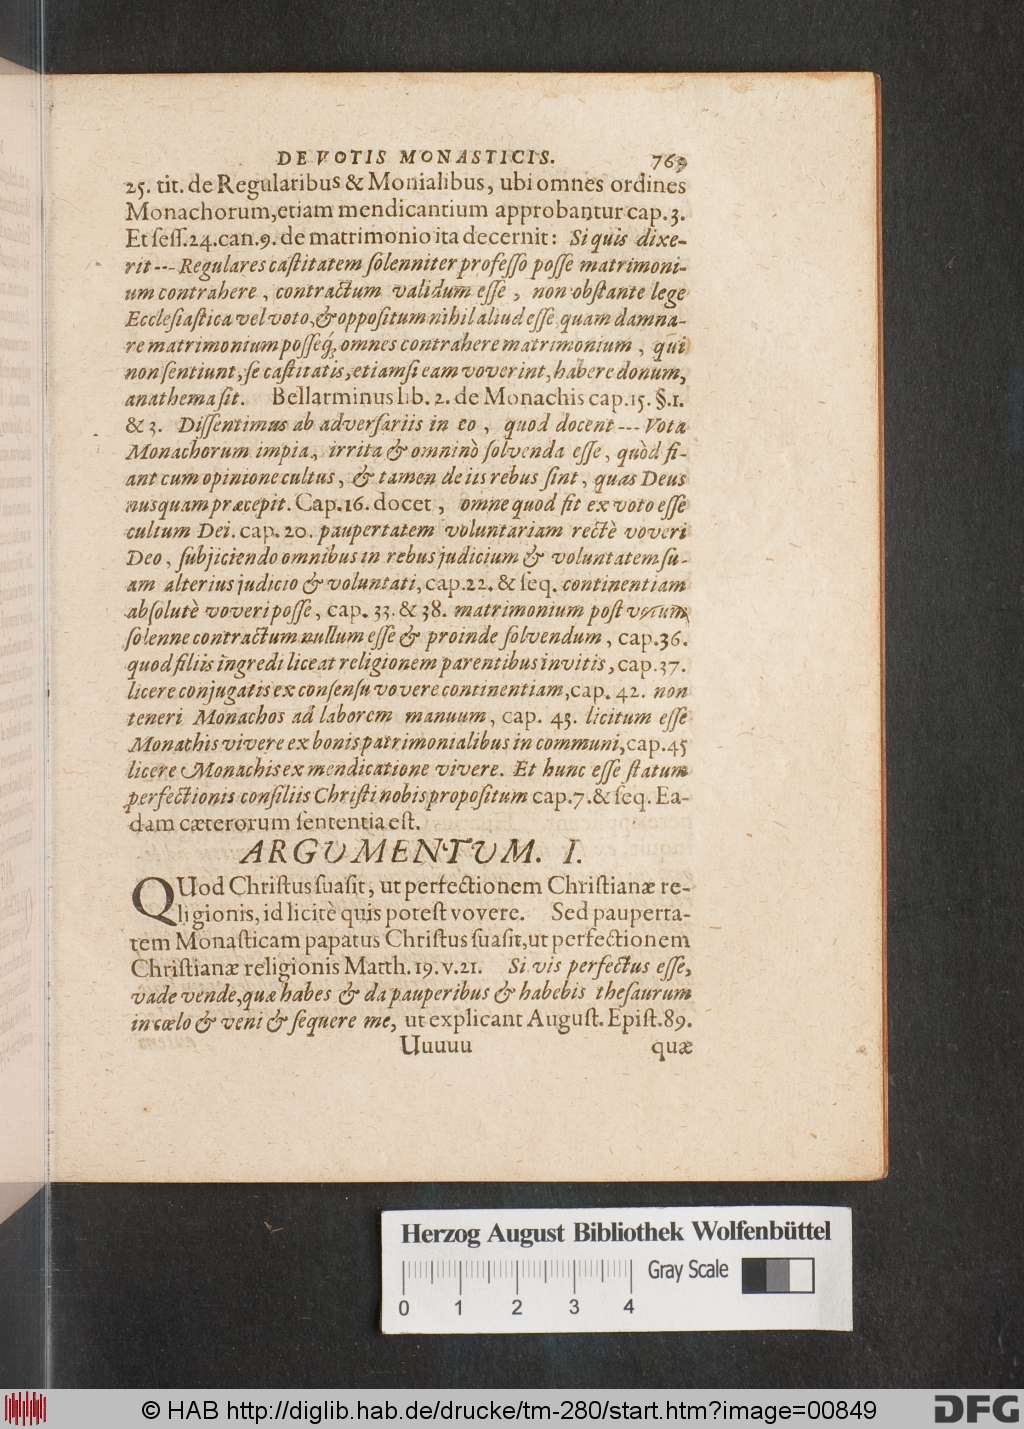 DE VOTIS MONASTICIS. 769
25. tit. de Regularibus & Monialibus, ubi omnes ordines
Monachorum, etiam mendicantium approbantur cap. 3.
Et sess. 24. can. 9. de matrimonio ita decernit: Si quis dixe-
rit --- Regulares castitatem solenniter professo posse matrimoni-
um contrahere, contractum validum esse, non obstante lege
Ecclesiastica vel voto, & oppositum nihil aliud esse quam damna-
re matrimonium posseq́; omnes contrahere matrimonium, qui
non sentiunt, se castitatis, etiamsi eam voverint, habere donum,
anathema sit. Bellarminus lib. 2. de Monachis cap. 15. §. 1.
& 3. Dissentimus ab adversariis in eo, quod docent --- Vota
Monachorum impia, irrita & omninò solvenda esse, quòd fi-
ant cum opinione cultus, & tamen de iis rebus sint, quas Deus
nusquam præcepit. Cap. 16. docet, omne quod fit ex voto esse
cultum Dei. cap. 20. paupertatem voluntariam rectè voveri
Deo, subjiciendo omnibus in rebus judicium & voluntatem su-
am alterius judicio & voluntati, cap. 22. & seq. continentiam
absolutè voveri posse, cap. 33. & 38. matrimonium post votum
solenne contractum nullum esse & proinde solvendum, cap. 36.
quod filiis ingredi liceat religionem parentibus invitis, cap. 37.
licere conjugatis ex consensu vovere continentiam, cap. 42. non
teneri Monachos ad laborem manuum, cap. 43. licitum esse
Monachis vivere ex bonis patrimonialibus in communi, cap. 45
licere Monachis ex mendicatione vivere. Et hunc esse statum
perfectionis consiliis Christi nobis propositum cap. 7. & seq. Ea-
dam cæterorum sententia est.
ARGUMENTUM. I.
QUod Christus suasit, ut perfectionem Christianæ re-
ligionis, id licitè quis potest vovere. Sed pauperta-
tem Monasticam papatus Christus suasit, ut perfectionem
Christianæ religionis Matth. 19. v. 21. Si vis perfectus esse,
vade vende, quæ habes & da pauperibus & habebis thesaurum
in cœlo & veni & sequere me, ut explicant August. Epist. 89.
Uuuuu quæ
Herzog August Bibliothek Wolfenbüttel
Gray Scale
0 1 2 3 4
© HAB http://diglib.hab.de/drucke/tm-280/start.htm?image=00849
DFG